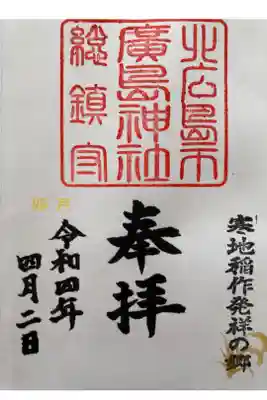 北広島市
廣島神社
総鎮守
寒地稲作発祥の郷
奉拝
令和四年
四月二日